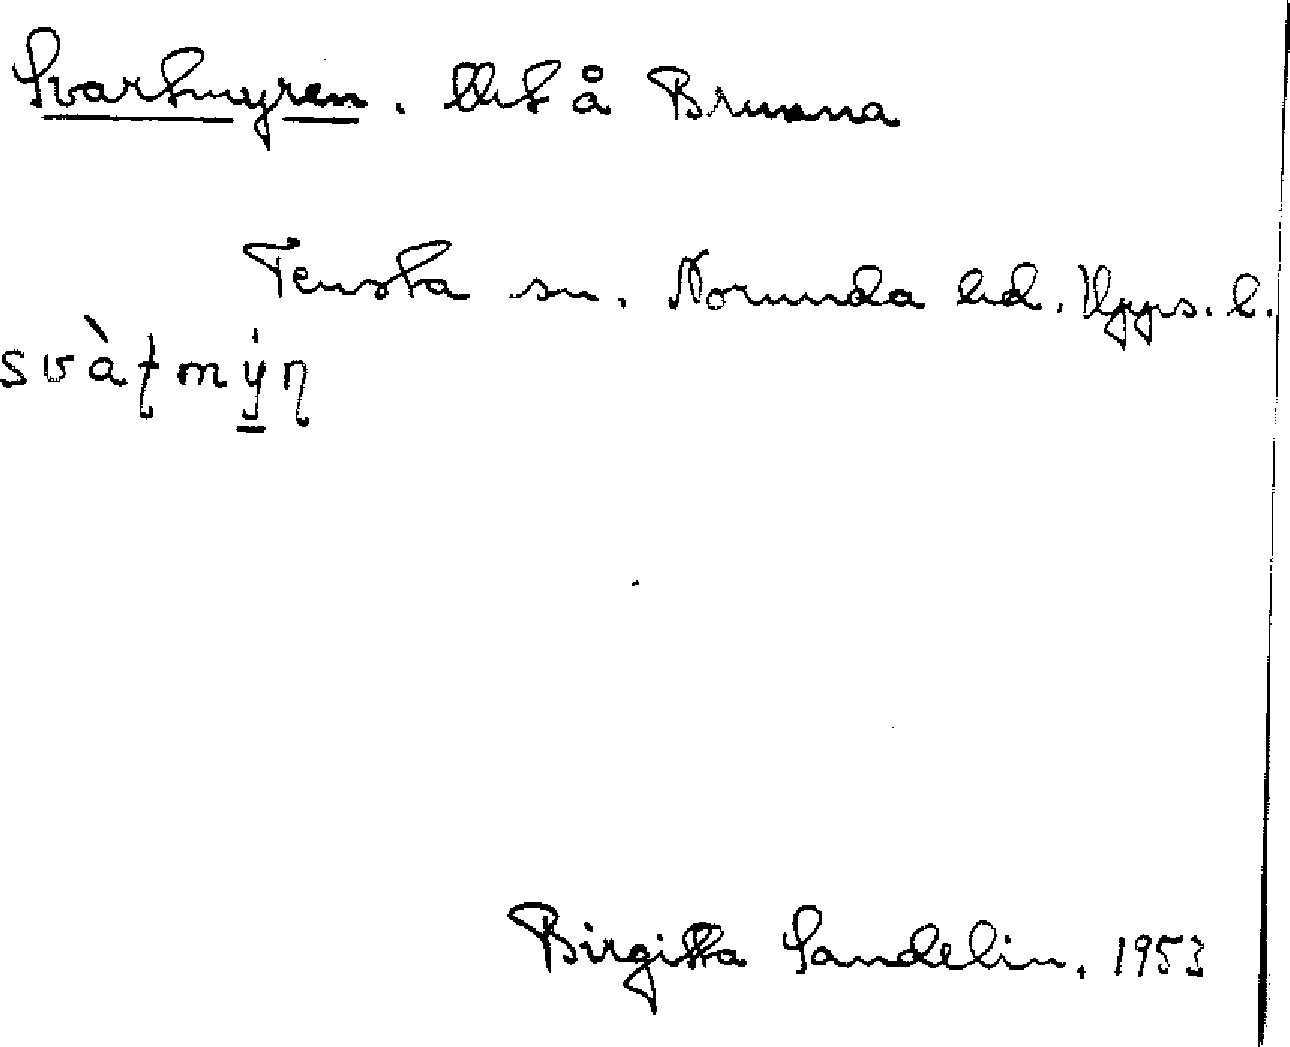 Svartmyren. å Brunna
Tensta sn. Norunda hd. Upps. l.
svàṭmýṇ
Birgitta Sandelin, 1953